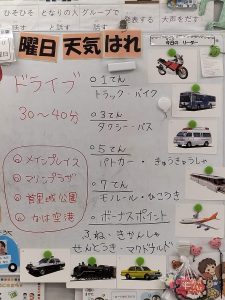 ひそひそ
となりの人
グループで
発表する
大声だす
話す
と話す
話す
曜日 天気 はれ
今日の リーダー
ドライブ
30〜40分
①メインプレイス
②マリンプラザ
③首里城公園
④なは空港
○1てん
トラック・バイク
○3てん
タクシー・バス
○5てん
パトカー・きゅうきゅうしゃ
○7てん
モノレール・ひこうき
○ボーナスポイント
ふね・きかんしゃ
せんとうき・マクドナルド